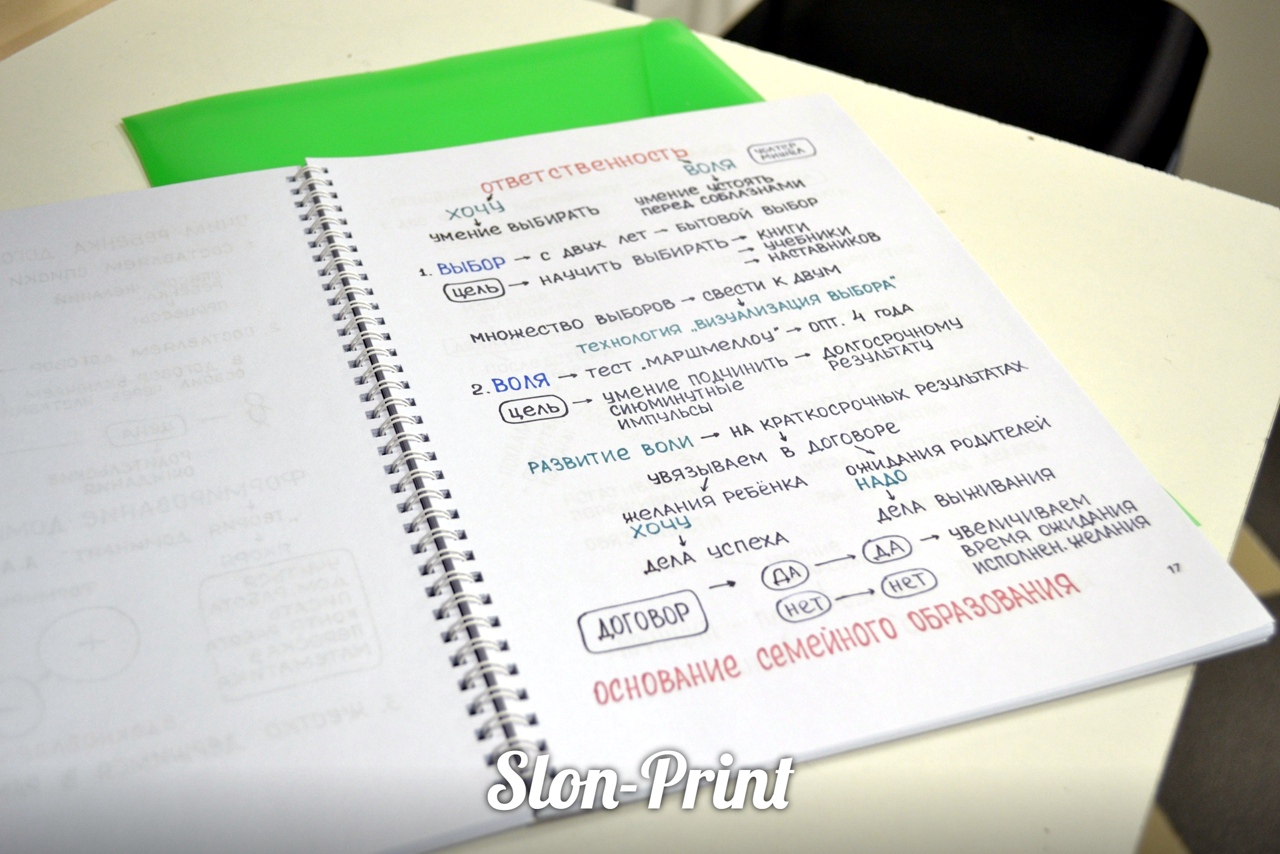 ОТВЕТСТВЕННОСТЬ
УОЛТЕР МИШЕЛ
ХОЧУ
ВОЛЯ
УМЕНИЕ ВЫБИРАТЬ
УМЕНИЕ УСТОЯТЬ
ПЕРЕД СОБЛАЗНАМИ
1. ВЫБОР → С ДВУХ ЛЕТ → БЫТОВОЙ ВЫБОР
ЦЕЛЬ → НАУЧИТЬ ВЫБИРАТЬ → КНИГИ
→ УЧЕБНИКИ
→ НАСТАВНИКОВ
МНОЖЕСТВО ВЫБОРОВ → СВЕСТИ К ДВУМ
ТЕХНОЛОГИЯ „ВИЗУАЛИЗАЦИЯ ВЫБОРА"
2. ВОЛЯ → ТЕСТ „МАРШМЕЛЛОУ" → ОПТ. 4 ГОДА
ЦЕЛЬ → УМЕНИЕ ПОДЧИНИТЬ → ДОЛГОСРОЧНОМУ
СИЮМИНУТНЫЕ РЕЗУЛЬТАТУ
ИМПУЛЬСЫ
РАЗВИТИЕ ВОЛИ → НА КРАТКОСРОЧНЫХ РЕЗУЛЬТАТАХ
УВЯЗЫВАЕМ В ДОГОВОРЕ
ЖЕЛАНИЯ РЕБЁНКА
ОЖИДАНИЯ РОДИТЕЛЕЙ
ХОЧУ
НАДО
ДЕЛА УСПЕХА
ДЕЛА ВЫЖИВАНИЯ
ДОГОВОР → ДА → ДА → УВЕЛИЧИВАЕМ
ВРЕМЯ ОЖИДАНИЯ
ИСПОЛНЕН. ЖЕЛАНИЯ
НЕТ → НЕТ
ОСНОВАНИЕ СЕМЕЙНОГО ОБРАЗОВАНИЯ
17
Slon-Print